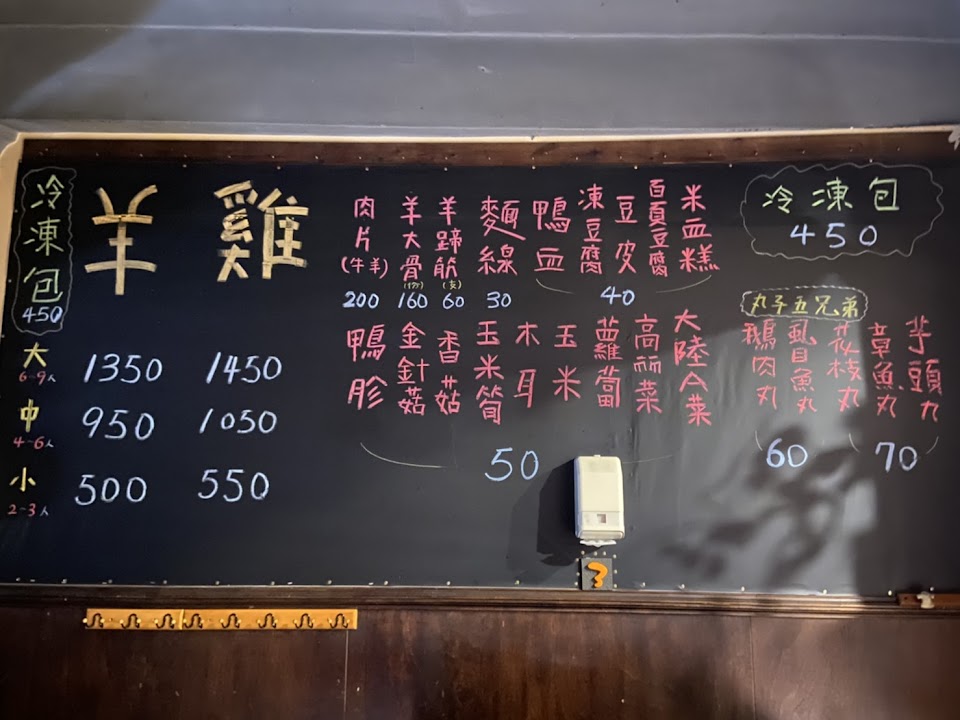 冷凍包
450
羊 雞
大 6-9人 1350 1450
中 4-6人 950 1050
小 2-3人 500 550
肉片(牛羊) 200
羊大骨 160
羊蹄筋(支) 60
麵線 30
鴨血
凍豆腐
豆皮
百頁豆腐
米血糕
40
鴨胗
金針菇
香菇
玉米筍
木耳
玉米
蘿蔔
高丽菜
大陸A菜
50
冷凍包
450
丸子五兄弟
鵝肉丸
虱目魚丸
60
花枝丸
章魚丸
芋頭丸
70
?